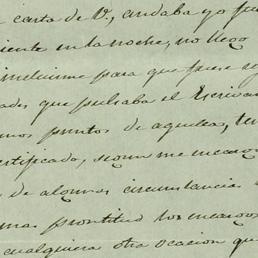 carta de V., andaba yo fue
iente en la noche, no llego
para que fuese
que pulsaba el Escriva
mos puntos de aquellos, ten
ertificado, segun me
de algunas circunstancias
mas prontitud los
cualquiera otra ocacion que